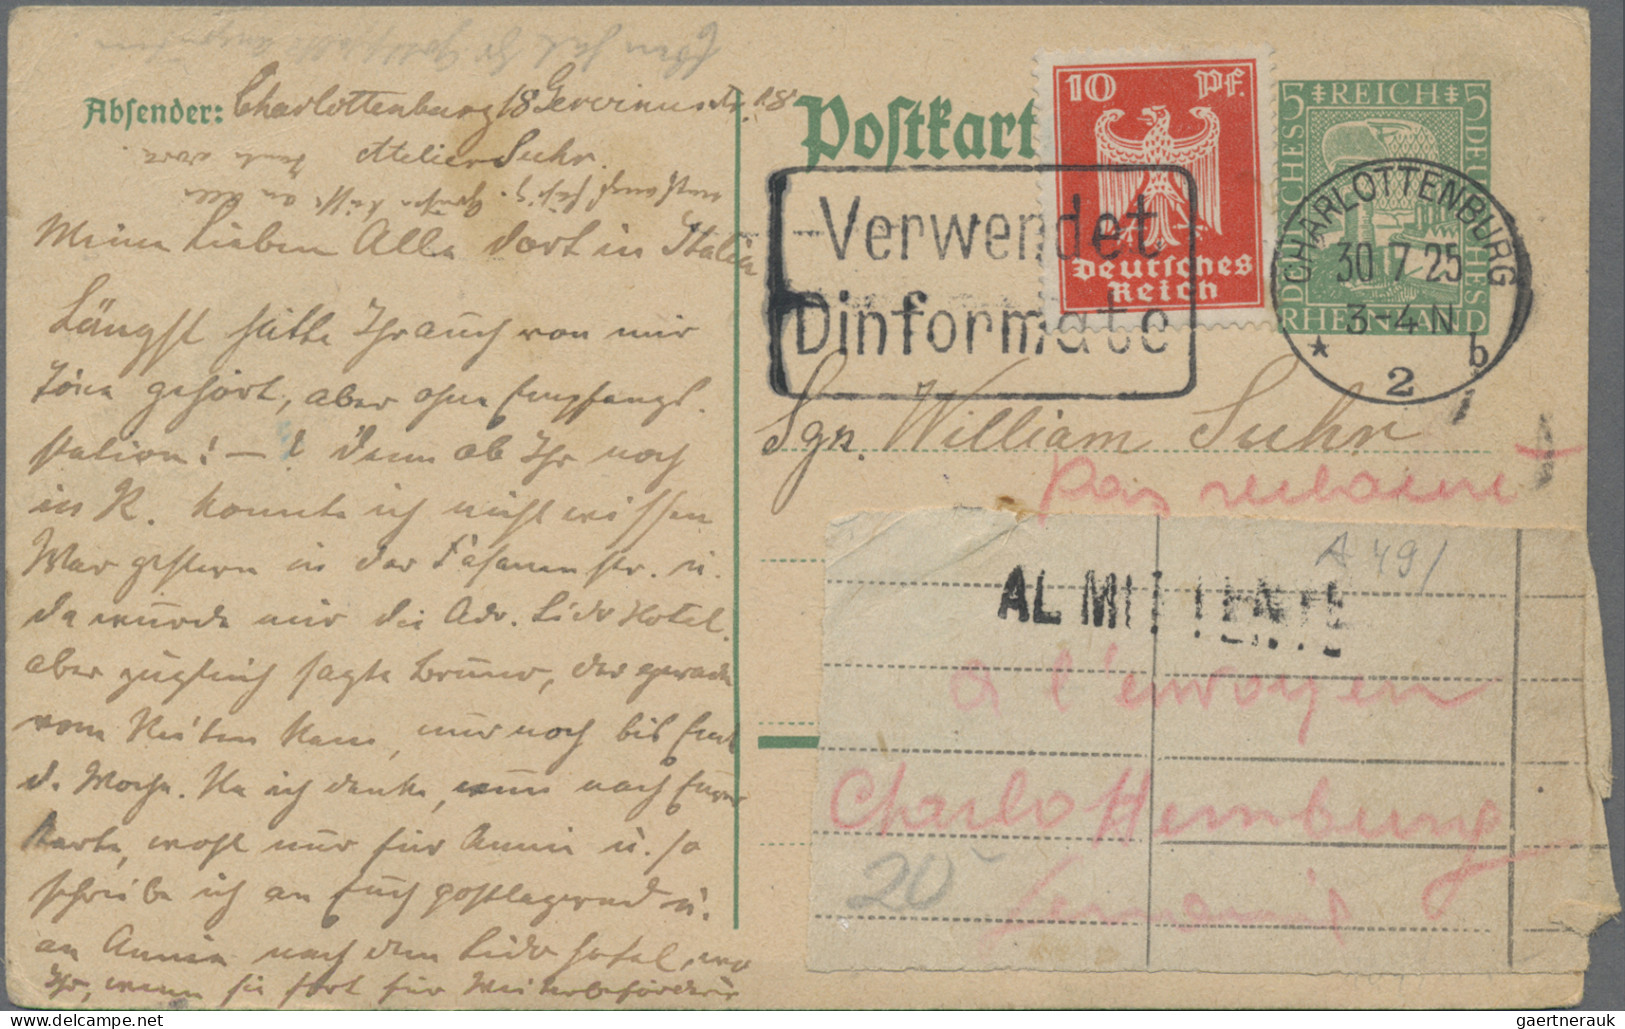 Absender: Charlottenburg / 8 Gervinusstr. 18
Atelier Suhr.
Meine Lieben Alle dort in Italia
Längst hätte Ihr auch von mir
Töne gehört, aber ohne Empfangs-
station! — ! Denn ob Ihr noch
in R. konnte ich nicht wissen
War gestern in der Fasanenstr. u.
da wurde mir die Adr. Lido Hotel.
aber zugleich sagte Bruno, der gerade
vom Reiten kam, nur noch bis End
d. Woche. Na ich denke, nun nach Eurer
Karte, wohl nur für Annie u. so
schreibe ich an Euch postlagernd u.
an Annie nach dem Lido Hotel, wo
Ihr, wenn sie fort für Weiterbeförderg
Postkart
10 Pf.
Deutsches
Reich
5 REICH 5
DEUTSCHES
RHEINLAND
Verwendet
Dinformate
CHARLOTTENBURG
30.7.25
3-4 N
* 2 b
Sgn. William Suhr
pas réclamé
A 491
AL MITTENTE
a l'envoyeur
Charlottemburg
20
gaertnerauk